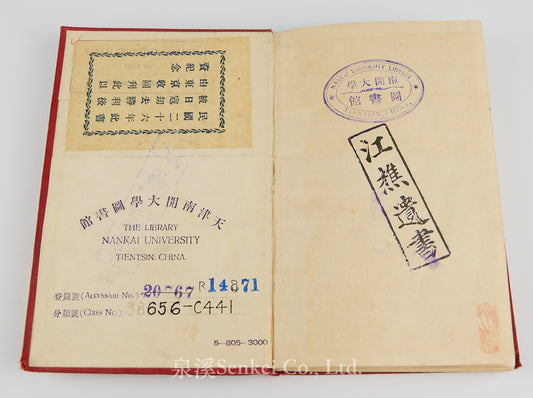 民國二十六年此書
被日寇劫去勝利後
由東京收回刊此以
資紀念
天津南開大學圖書館
THE LIBRARY
NANKAI UNIVERSITY
TIENTSIN, CHINA.
登錄號(Accession No.) 20767 R14871
分類號(Class No.) 38656-C441
5—605—3000
NANKAI UNIVERSITY LIBRARY
南開大學
圖書館
TIENTSIN, CHINA.
江樵遺書
泉溪Senkei Co., Ltd.